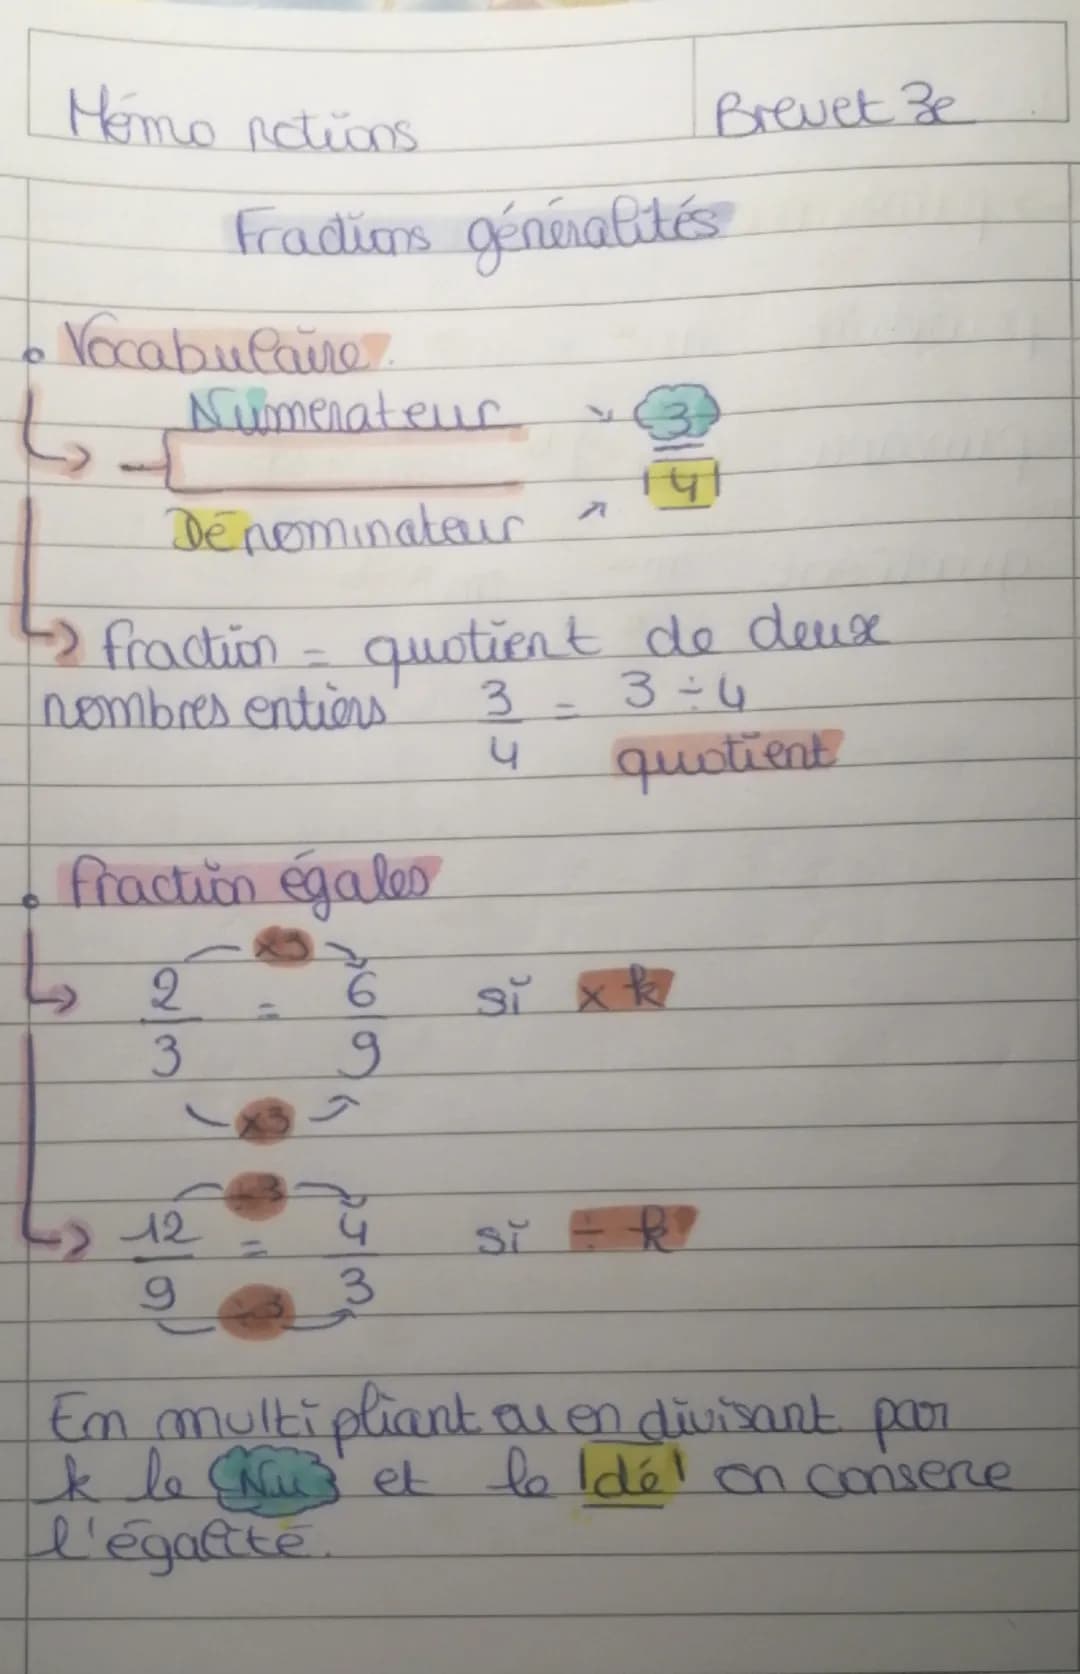 Mémo notions
Brevet 3e
Fractions généralités
Vocabulaire.
Numerateur
3
4
Dénominateur
fraction = quotient de deux
nombres entiers 3/4 = 3 ÷ 4
quotient
fraction égales
×3
2/3 = 6/9 si × k
×3
÷3
12/9 = 4/3 si ÷ k
÷3
En multipliant ou en divisant par
k le Nu et le dé on conserve
l'égalité.